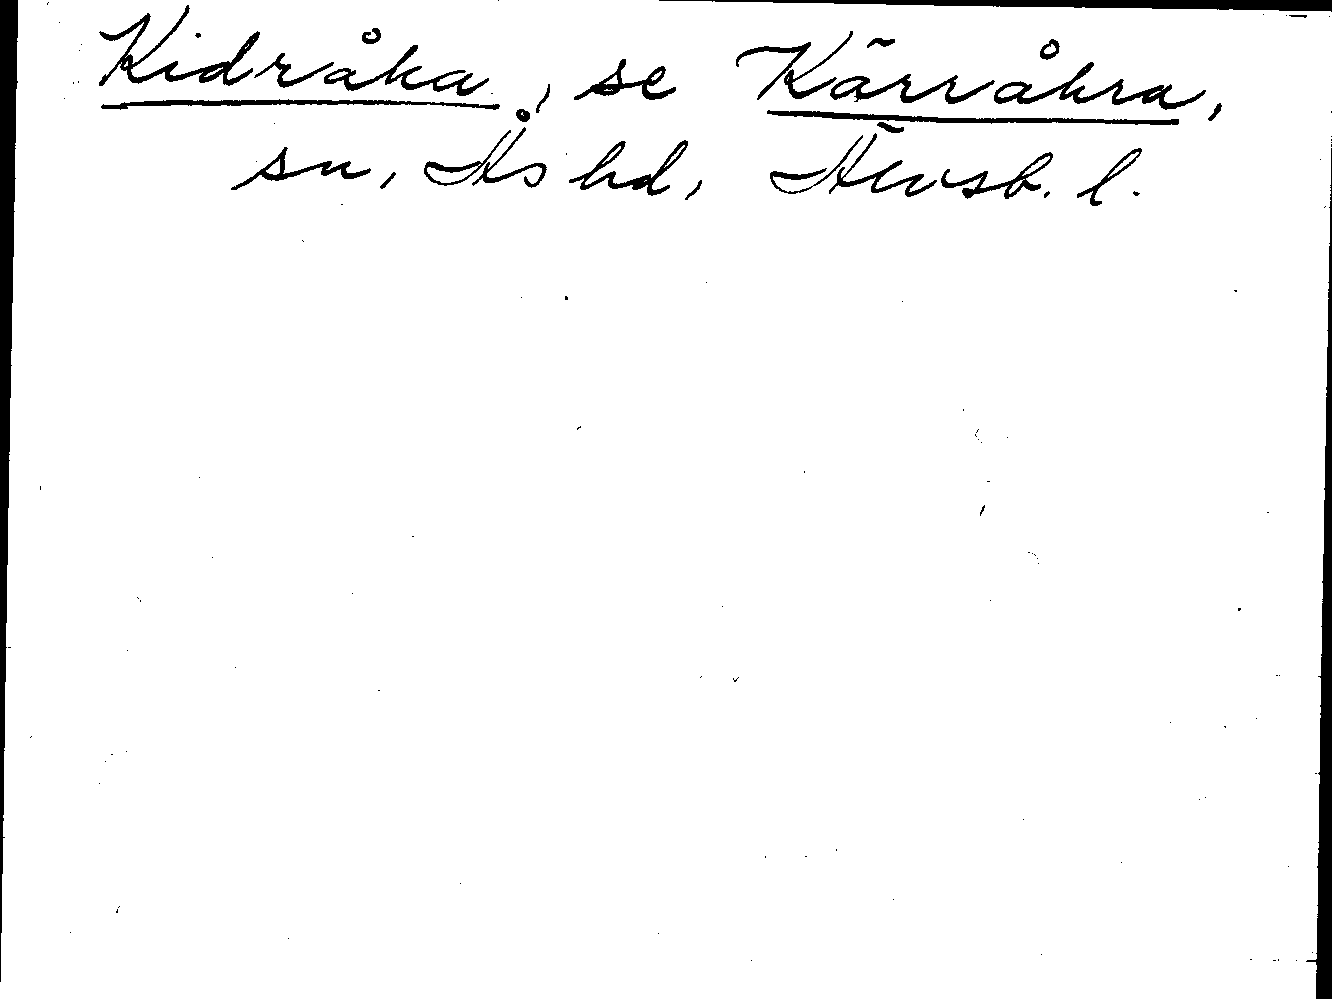 Kidråka, se Kärråkra,
sn, Ås hd, Älvsb. l.